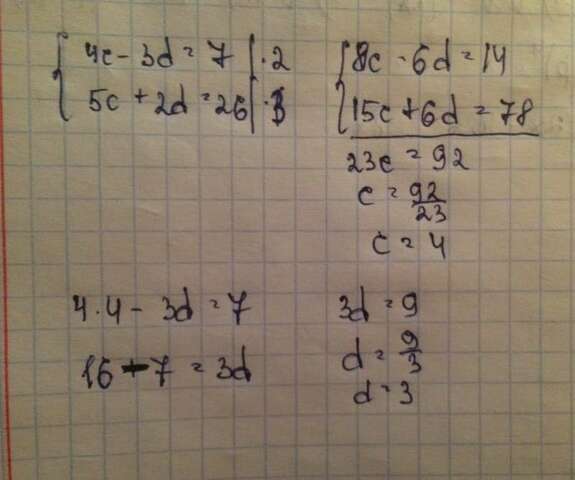 4c - 3d = 7 | · 2
5c + 2d = 26 | · 3
8c - 6d = 14
15c + 6d = 78
23c = 92
c = 92/23
c = 4
4 · 4 - 3d = 7
16 - 7 = 3d
3d = 9
d = 9/3
d = 3